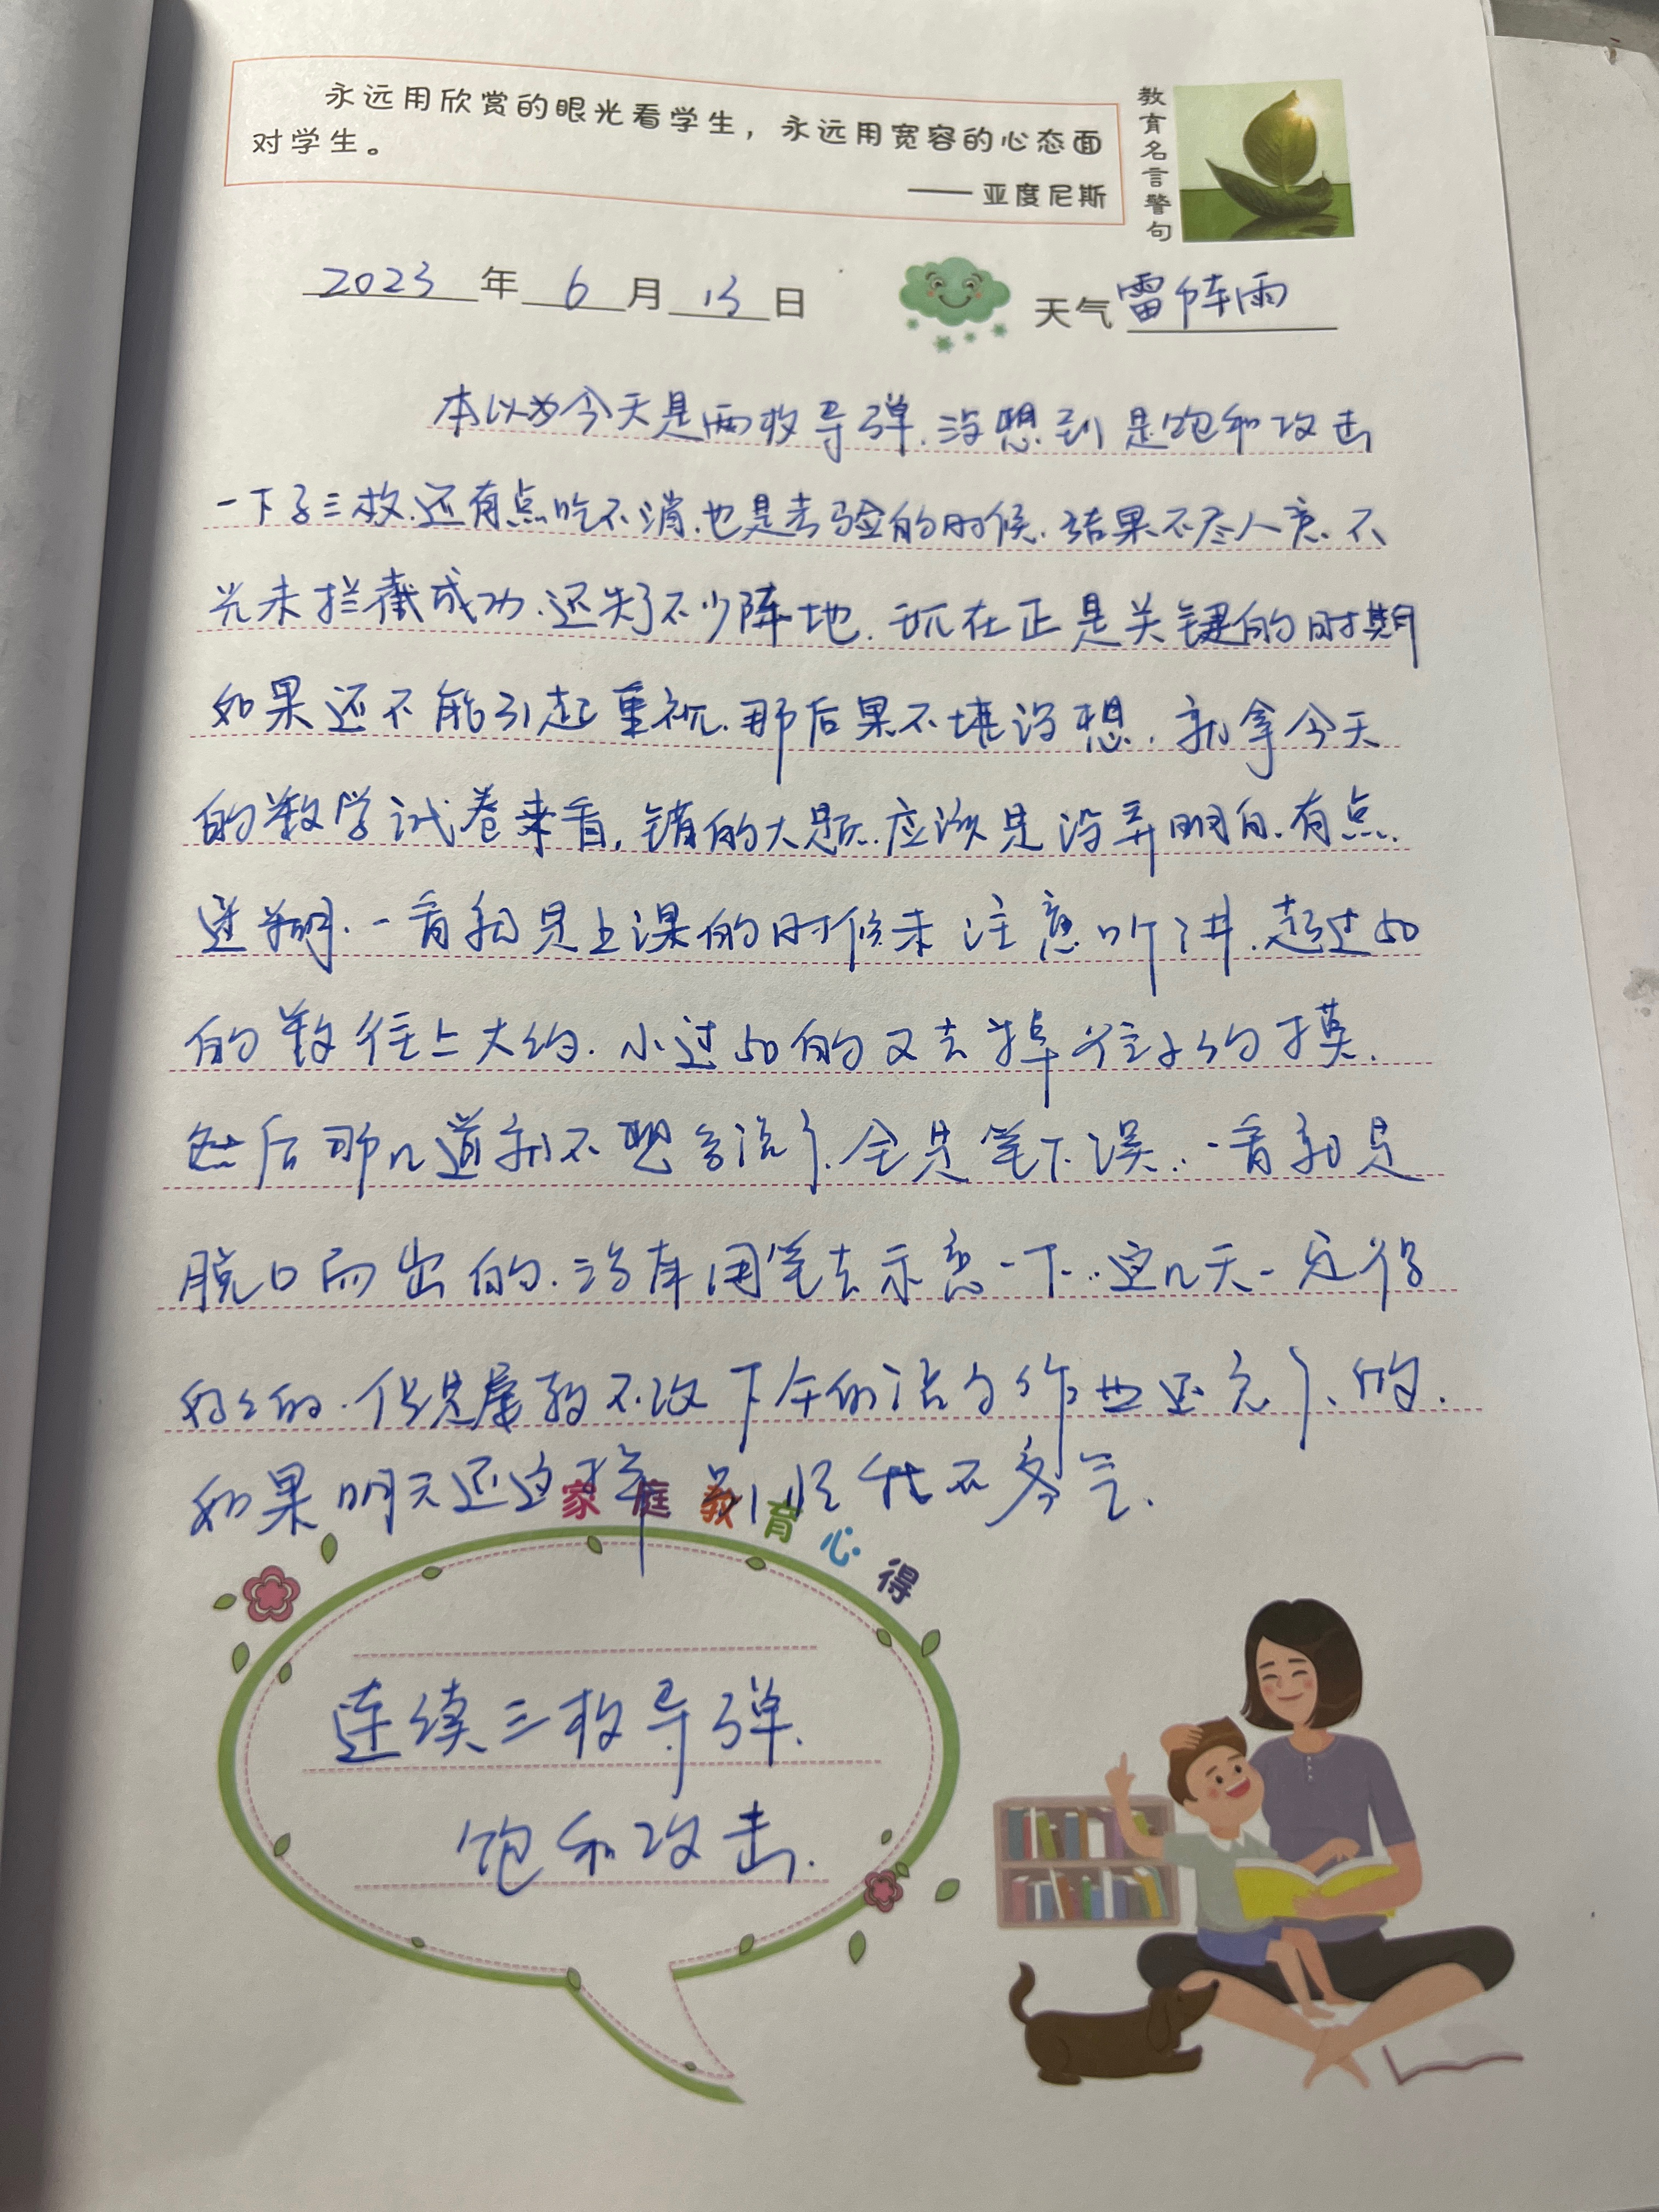 永远用欣赏的眼光看学生，永远用宽容的心态面
对学生。
——亚度尼斯
教育名言警句
2023年6月13日 天气 雷阵雨
本以为今天是两枚导弹.没想到是饱和攻击
一下子三枚.还有点吃不消.也是考验的时候.结果不尽人意.不
光未拦截成功.还失了不少阵地.现在正是关键的时期
如果还不能引起重视.那后果不堪设想.就拿今天
的数学试卷来看,错的大题.应该是没弄明白.有点.
迷糊.一看就是上课的时候未注意听讲.超过50
的数往上大约.小过50的又去掉往小的摸.
然后那几道就不想多说了.全是笔下误..一看就是
脱口而出的.没有用笔去示意一下..这几天一定得
好好的.但是屡教不改下午的活句作业还忘了的.
如果明天还这样 别怪我不客气.
家庭教育心得
连续三枚导弹.
饱和攻击.